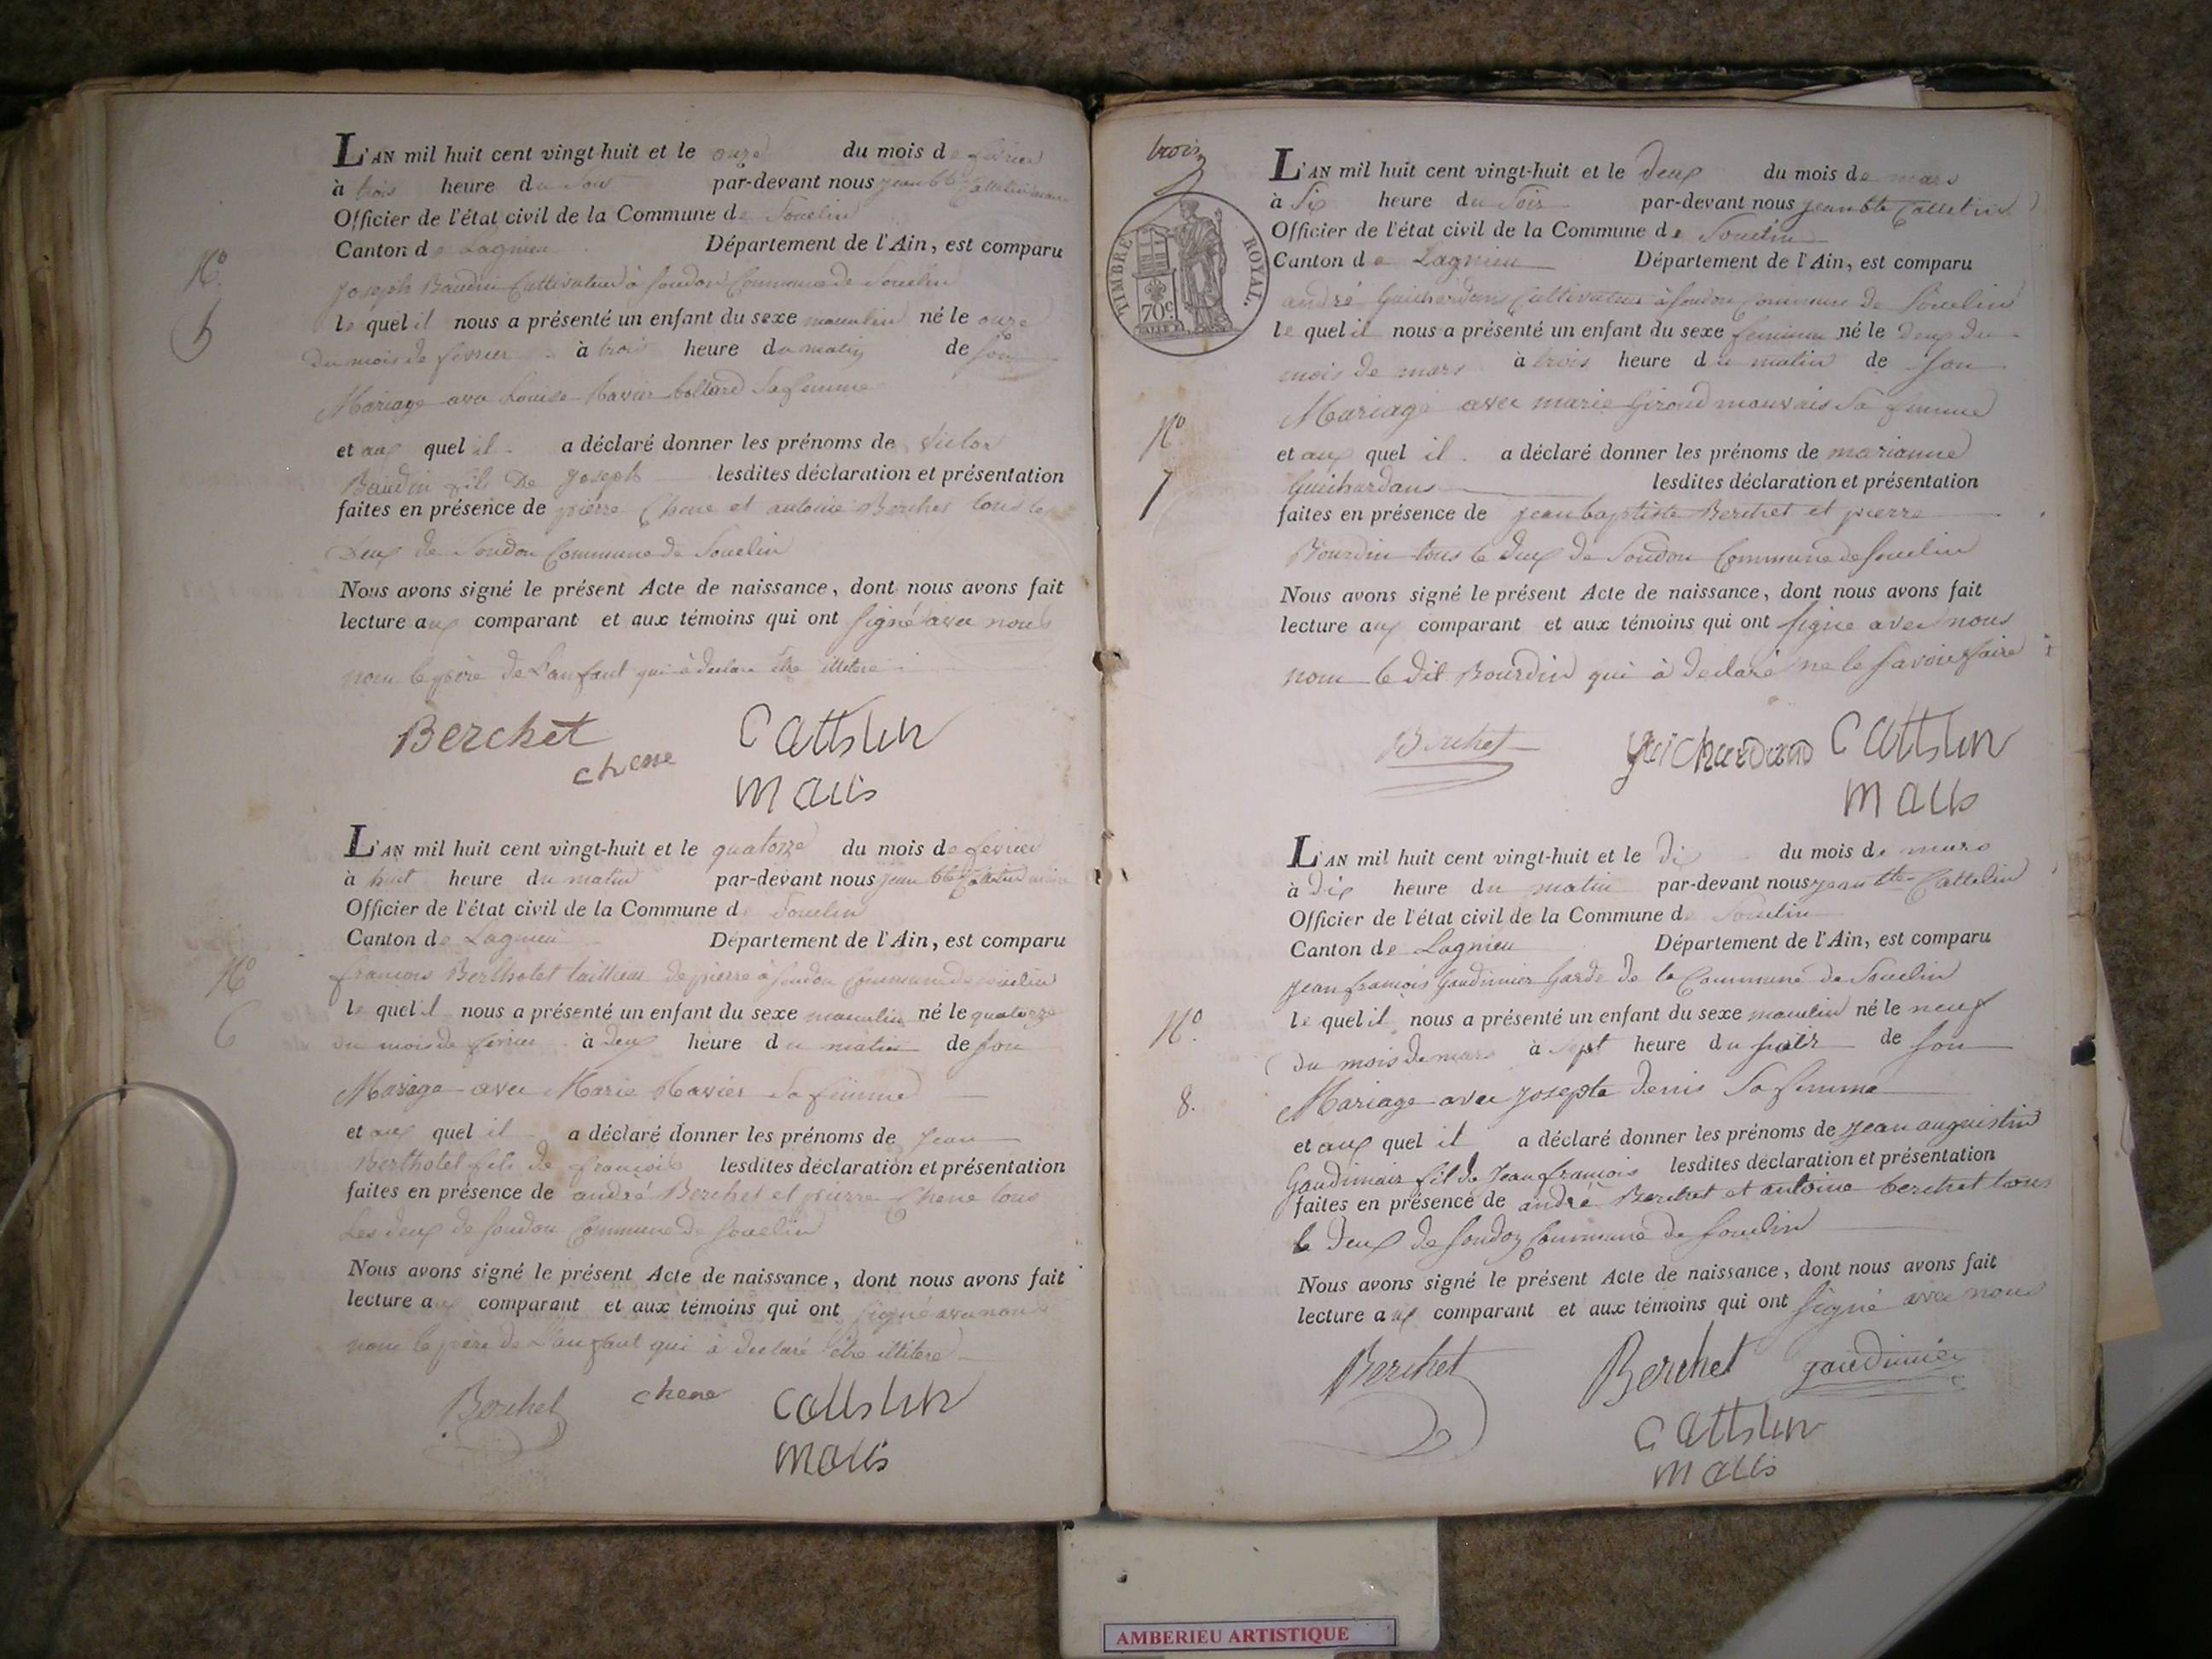 L'AN mil huit cent vingt-huit et le onze du mois de fevrier
à trois heure du soir par-devant nous jean bte Cattelin maire
Officier de l'état civil de la Commune de Souclin
Canton de Lagnieu Département de l'Ain, est comparu
N.o
5
Joseph Baudin Cultivateur à Soudon Commune de Souclin
le quel il nous a présenté un enfant du sexe masculin né le onze
du mois de fevrier à trois heure du matin de son
Mariage avec Louise sa femme
et aux quel il a déclaré donner les prénoms de Victor
Baudin fils De Joseph lesdites déclaration et présentation
faites en présence de pierre Chene et antoine Berchet tous les
Deux de Soudon Commune de Souclin
Nous avons signé le présent Acte de naissance, dont nous avons fait
lecture aux comparant et aux témoins qui ont signé avec nous
non le père de L'anfant qui à declaré être illitere
Berchet
chene
Cattelin
maire
L'AN mil huit cent vingt-huit et le quatorze du mois de fevrier
à huit heure du matin par-devant nous jean bte Cattelin maire
Officier de l'état civil de la Commune de Souclin
Canton de Lagnieu Département de l'Ain, est comparu
N.o
6
francois Berthotet tailleur de pierre à Soudon Commune de Souclin
le quel il nous a présenté un enfant du sexe masculin né le quatorze
du mois de fevrier à Deux heure du matin de son
Mariage avec Marie sa femme
et aux quel il a déclaré donner les prénoms de Jean
Berthotet fils de francois lesdites déclaration et présentation
faites en présence de andré Berchet et pierre Chene tous
Les deux de Soudon Commune De Souclin
Nous avons signé le présent Acte de naissance, dont nous avons fait
lecture aux comparant et aux témoins qui ont signé avec nous
non le père de L'anfant qui à declaré être illitere
Berchet chene Cattelin
maire
trois
TIMBRE ROYAL.
70c
L'AN mil huit cent vingt-huit et le deux du mois de mars
à Six heure du Soir par-devant nous jean bte Cattelin
Officier de l'état civil de la Commune de Souclin
Canton de Lagnieu Département de l'Ain, est comparu
andré Guichardans Cultivateur à Soudon Commune de Souclin
le quel il nous a présenté un enfant du sexe feminin né le Deux du
mois de mars à trois heure du matin de son
Mariage avec marie Giroud mauvais sa femme
N.o
7
et aux quel il a déclaré donner les prénoms de marianne
Guichardans lesdites déclaration et présentation
faites en présence de jean baptiste Berchet et pierre
Bourdin tous le deux de Soudon Commune de Souclin
Nous avons signé le présent Acte de naissance, dont nous avons fait
lecture aux comparant et aux témoins qui ont signé avec nous
non le dit Bourdin qui à declaré ne le savoir faire
Berchet guichardans Cattelin
maire
L'AN mil huit cent vingt-huit et le dix du mois de mars
à Dix heure du matin par-devant nous jean bte Cattelin
Officier de l'état civil de la Commune de Souclin
Canton de Lagnieu Département de l'Ain, est comparu
jean francois Gaudinier Garde de la Commune de Souclin
N.o
8.
le quel il nous a présenté un enfant du sexe masculin né le neuf
du mois de mars à sept heure du soir de son
Mariage avec josepte Denis sa femme
et aux quel il a déclaré donner les prénoms de jean auguistin
Gaudinier fil de Jean francois lesdites déclaration et présentation
faites en présence de andré Berchet et antoine berchet tous
le Deux de Soudon Commune de Souclin
Nous avons signé le présent Acte de naissance, dont nous avons fait
lecture aux comparant et aux témoins qui ont signé avec nous
Berchet Berchet gaudinier
Cattelin
maire
AMBERIEU ARTISTIQUE